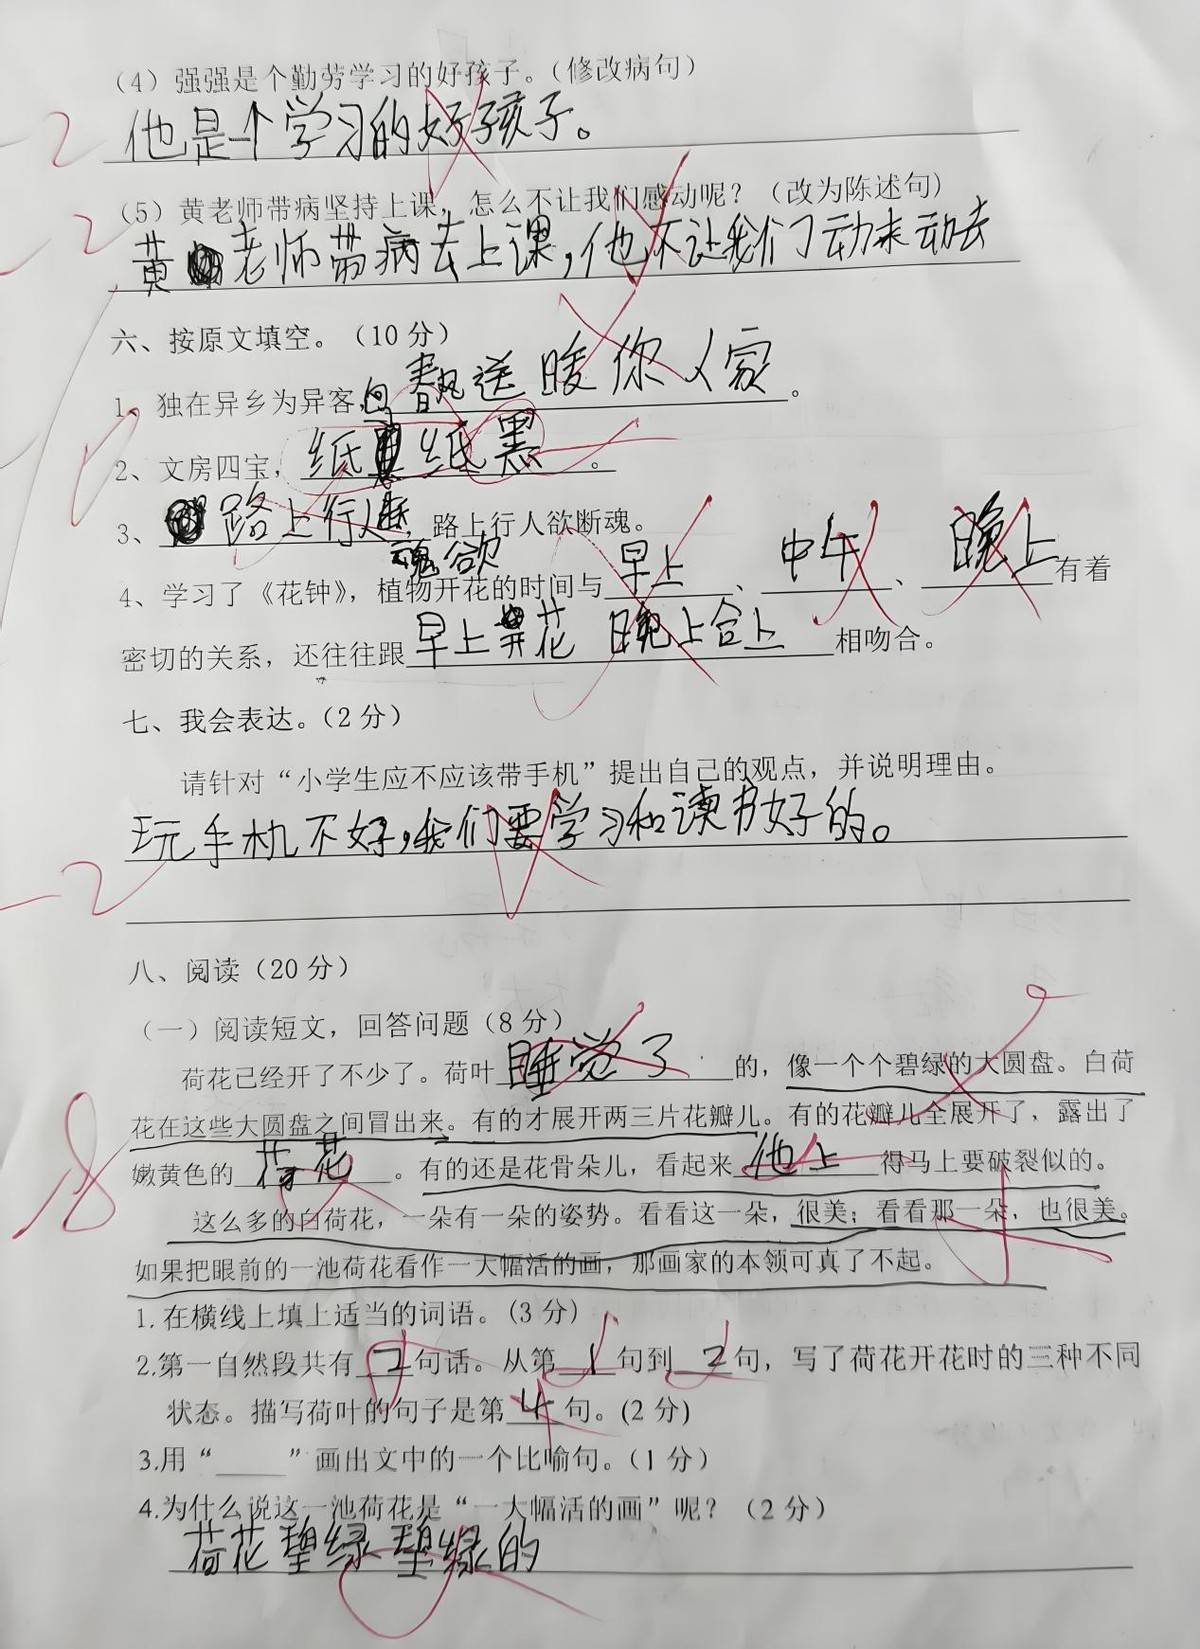 （4）强强是个勤劳学习的好孩子。（修改病句）
-2 他是一个学习的好孩子。
（5）黄老师带病坚持上课，怎么不让我们感动呢？（改为陈述句）
-2 黄老师带病去上课，他不让我们动来动去
六、按原文填空。（10分）
送暖你人家
1、独在异乡为异客，。
2、文房四宝，纸 纸黑。
3、路上行人断魂欲，路上行人欲断魂。
4、学习了《花钟》，植物开花的时间与早上、中午、晚上有着
密切的关系，还往往跟早上开花 晚上合上相吻合。
七、我会表达。（2分）
请针对“小学生应不应该带手机”提出自己的观点，并说明理由。
玩手机不好，我们要学习和读书好的。
-2
八、阅读（20分）
（一）阅读短文，回答问题（8分）
荷花已经开了不少了。荷叶睡觉了的，像一个个碧绿的大圆盘。白荷
花在这些大圆盘之间冒出来。有的才展开两三片花瓣儿。有的花瓣儿全展开了，露出了
-8 嫩黄色的荷花。有的还是花骨朵儿，看起来他上得马上要破裂似的。
这么多的白荷花，一朵有一朵的姿势。看看这一朵，很美；看看那一朵，也很美。
如果把眼前的一池荷花看作一大幅活的画，那画家的本领可真了不起。
1.在横线上填上适当的词语。(3分)
2.第一自然段共有2句话。从第1句到2句，写了荷花开花时的三种不同
状态。描写荷叶的句子是第4句。(2分)
3.用“____”画出文中的一个比喻句。（1分）
4.为什么说这一池荷花是“一大幅活的画”呢？（2分）
荷花碧绿碧绿的